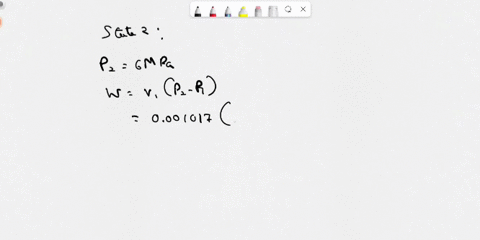 State 2:
P₂ = 6 MPa
W = v₁ (P₂-P₁)
= 0.001017 (